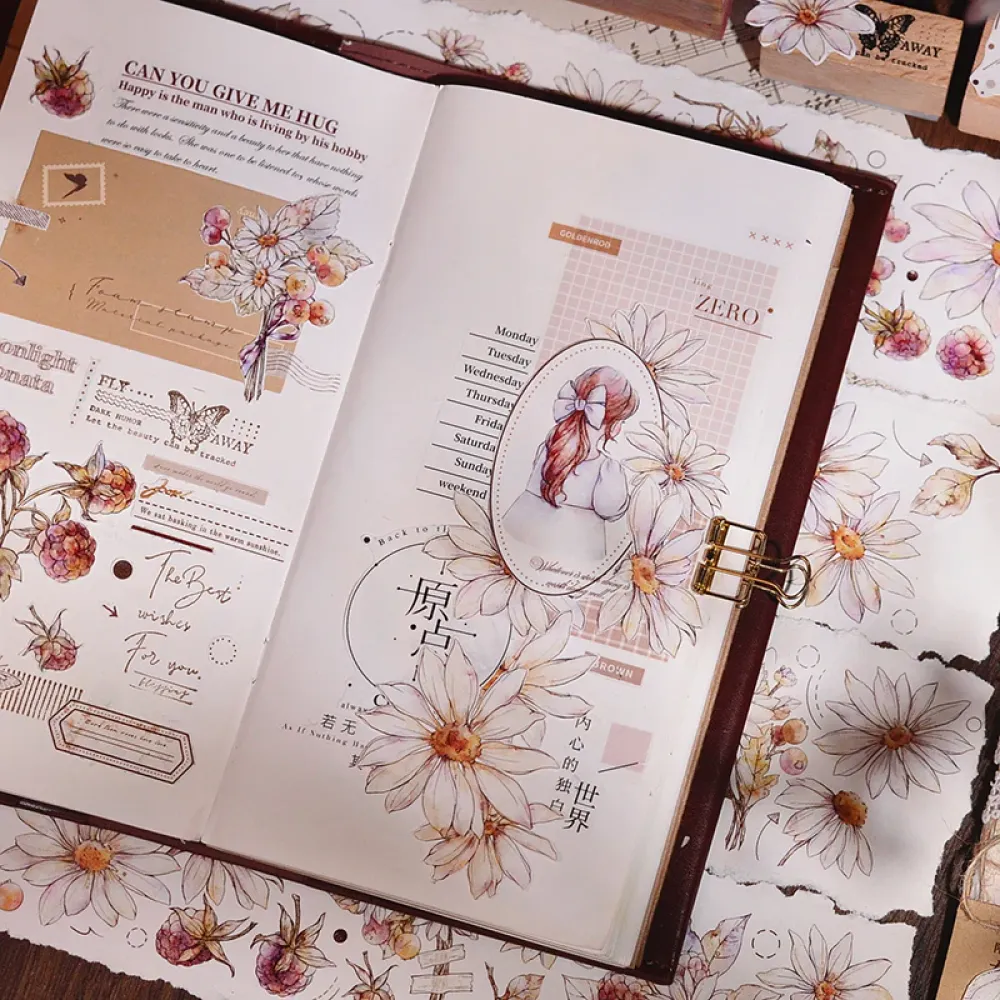 CAN YOU GIVE ME HUG
Happy is the man who is living by his hobby
There were a sensitivity and a beauty to her that have nothing
to do with looks. She was one to be listened to, whose words
were so easy to take to heart.
Foam stamp
Material package
onlight
onata
FLY
DARK HUMOR
Let the beauty can be tracked
AWAY
We sat basking in the warm sunshine.
The Best
wishes
For you.
Blessing
GOLDENROD
ZERO
Monday
Tuesday
Wednesday
Thursday
Frida
Saturda
Sunda
weekend
Back to th
原点
alwa
若无
As If Nothing Ha
Whatever is
BROWN
内心的独白
世界
AWAY
can be tracked